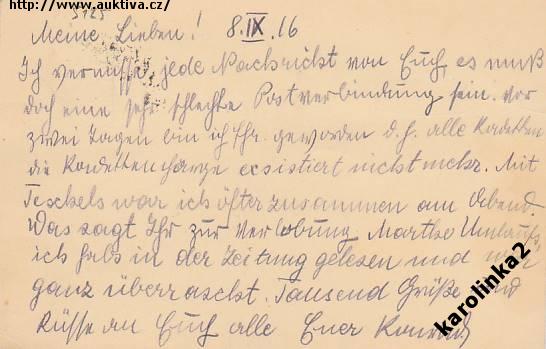 http://www.auktiva.cz/
5125
Meine Lieben! 8.IX.16
Ich vermisse jede Nachricht von Euch, es muß
doch eine sehr schlechte Postverbindung sein. vor
zwei Tagen bin ich Fhr. geworden d.h. alle Kadetten
die Kadettencharge exsistiert nicht mehr. Mit
Teschels war ich öfter zusammen am Abend.
Was sagt Ihr zur Verlobung Marthe
ich habs in der Zeitung gelesen und war
ganz überrascht. Tausend Grüße und
Küsse an Euch alle Euer Konrad
karolinka2